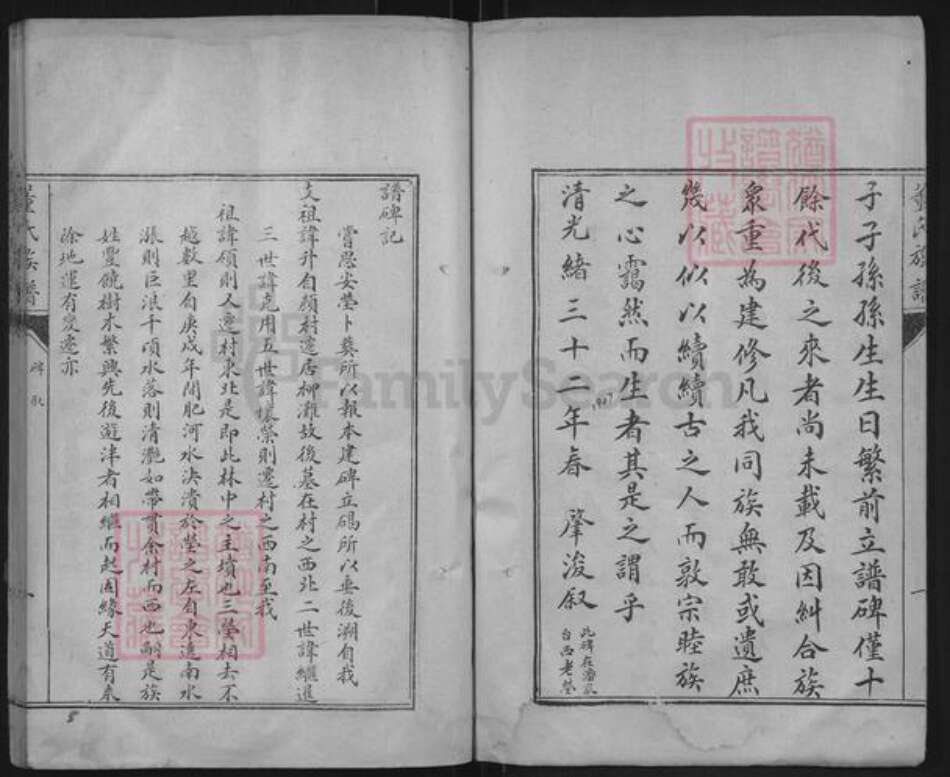 子子孫孫生生日繁前立譜碑僅十
餘代後之來者尚未載及因糾合族
衆重為建修凡我同族無敢或遺庶
幾以似以續續古之人而敦宗睦族
之心靄然而生者其是之謂乎
清光緒三十二年春 肇浚叙
1907
此碑在潘
台西老塋
譜碑記
嘗思安塋卜葬所以報本建碑立碣所以垂後溯自我
文祖諱升自顏村遷居柳灘故後墓在村之西北二世諱繼進
三世諱克用五世諱懷榮則遷村之西南至我
祖諱碩則人遷村東北是即此林中之主墳也三塋相去不
越數里自庚戌年間肥河水決潰於塋之左自東遶南水
漲則巨浪千頃水落則清灔如帶貫余村而西也嗣是族
姓豐饒樹木繁興先後遊泮者相繼而起固緣天道有本
涂地運有變遷亦
氏族譜
碑
5
FamilySearch